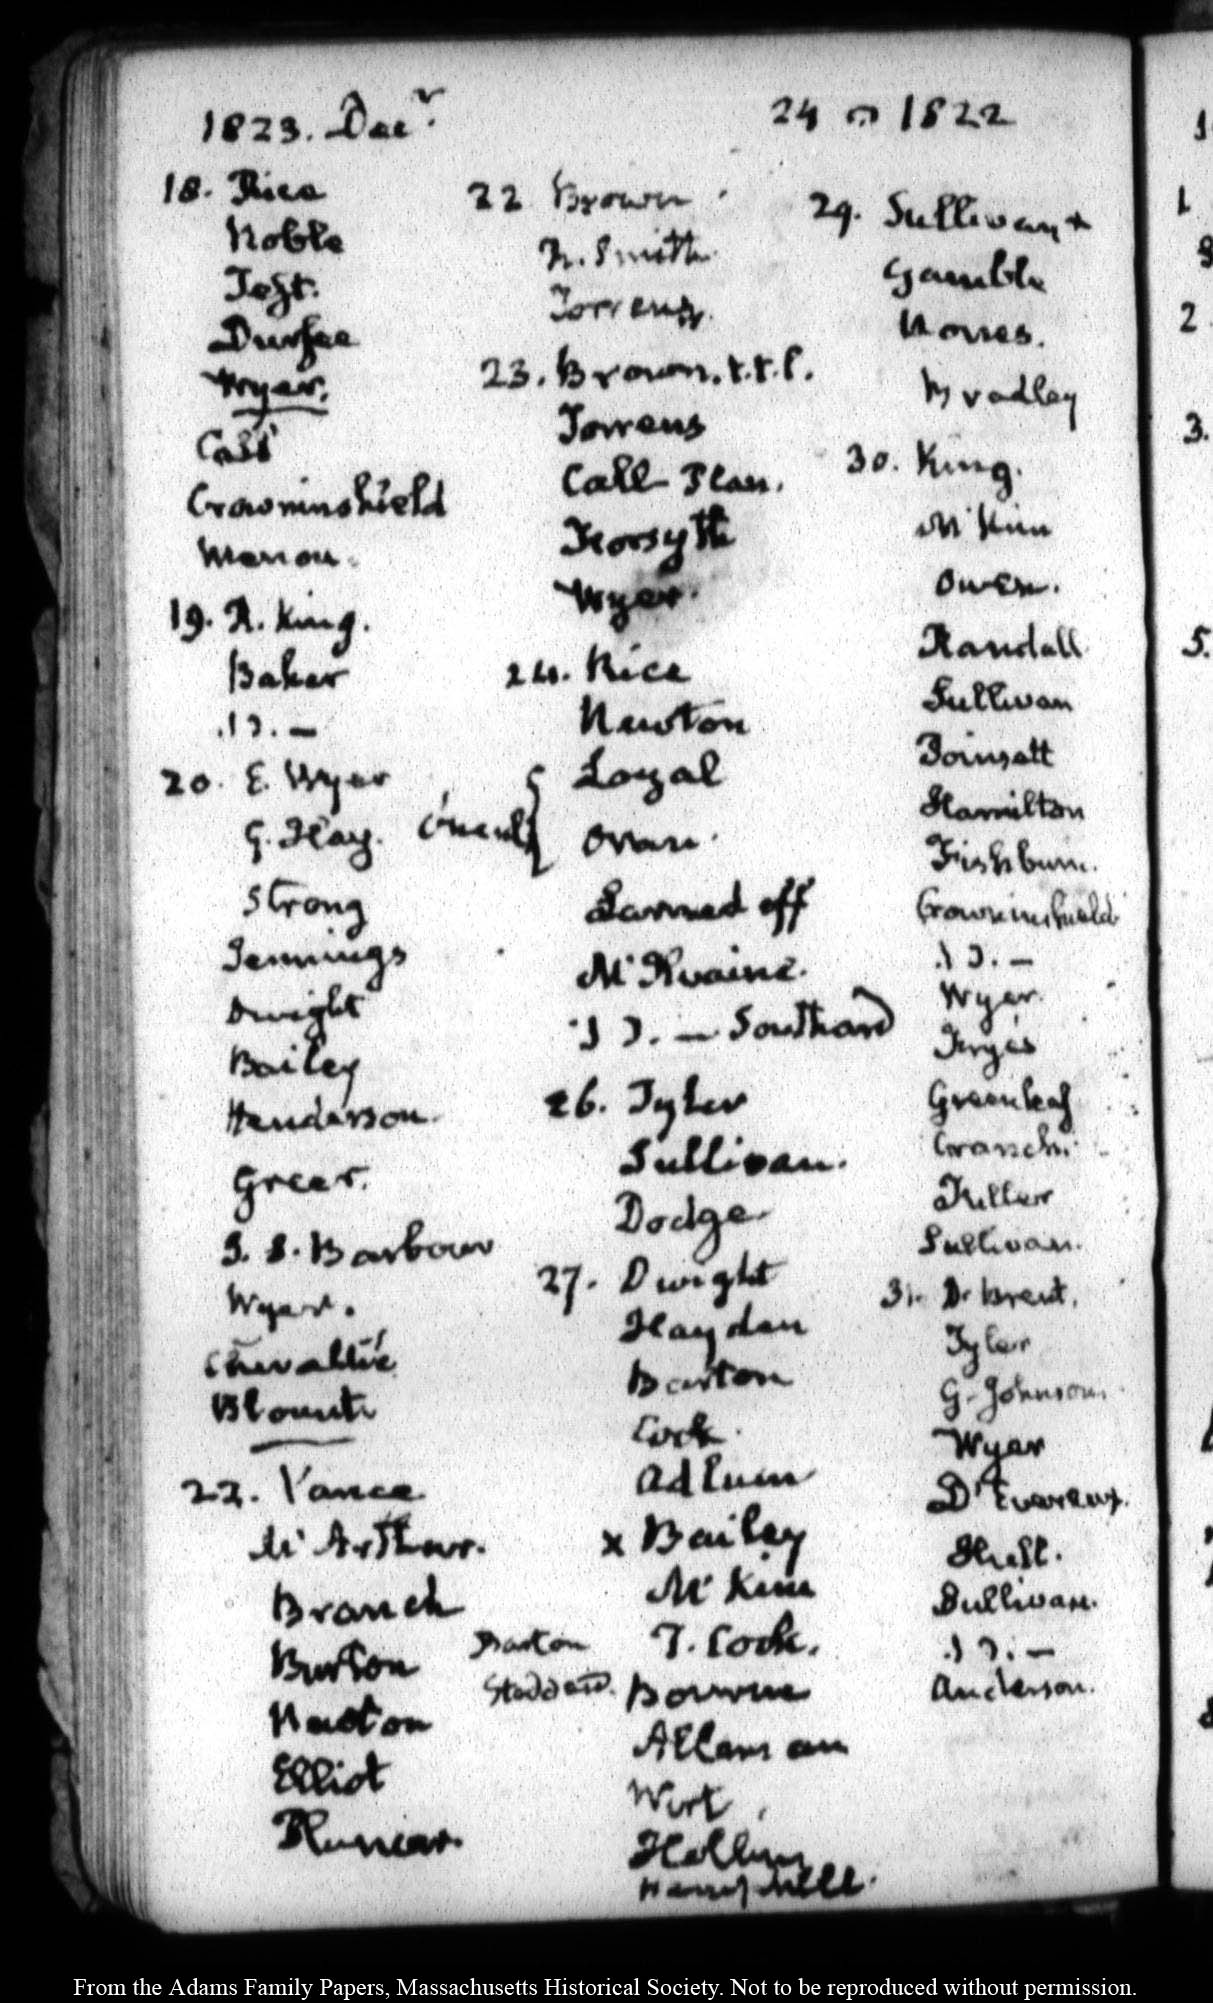 1823. Decr.
24 1822
18. Rice
Noble
Taft.
Durfee
Wyer.
Call
Crowninshield
19. R. King.
Baker
20. E. Wyer
G. Hay.
Strong
Jennings
Dwight
Bailey
Henderson.
Greer.
J. S. Barbour
Wyer.
Chevallié
Blount
22. Vance
McArthur.
Branch
Burton
Elliot
22 Brown
Smith
Torrens.
23. Brown. t.t.f.
Torrens
Call Plan.
Forsyth
Wyer.
24. Rice
Newton
Loyal
Larned off
McIlvaine.
— Southard
26. Tyler
Sullivan.
Dodge.
27. Dwight
Hayden
Barton
Cock.
Adlum
x Bailey
McKim
Barton
T. Cock.
Stoddard.
Wirt
29. Sullivan +
Gamble
Bradley
30. King.
McKim
Owen.
Randall
Sullivan
Poinsett
Hamilton
Fishburn.
Crowninshield
Wyer.
Frye's
Greenleaf
Cranch.
Fuller
Sullivan.
31. D. Brent.
Tyler
G. Johnson.
Wyer
D'Evereux.
Sullivan.
Anderson.
From the Adams Family Papers, Massachusetts Historical Society. Not to be reproduced without permission.